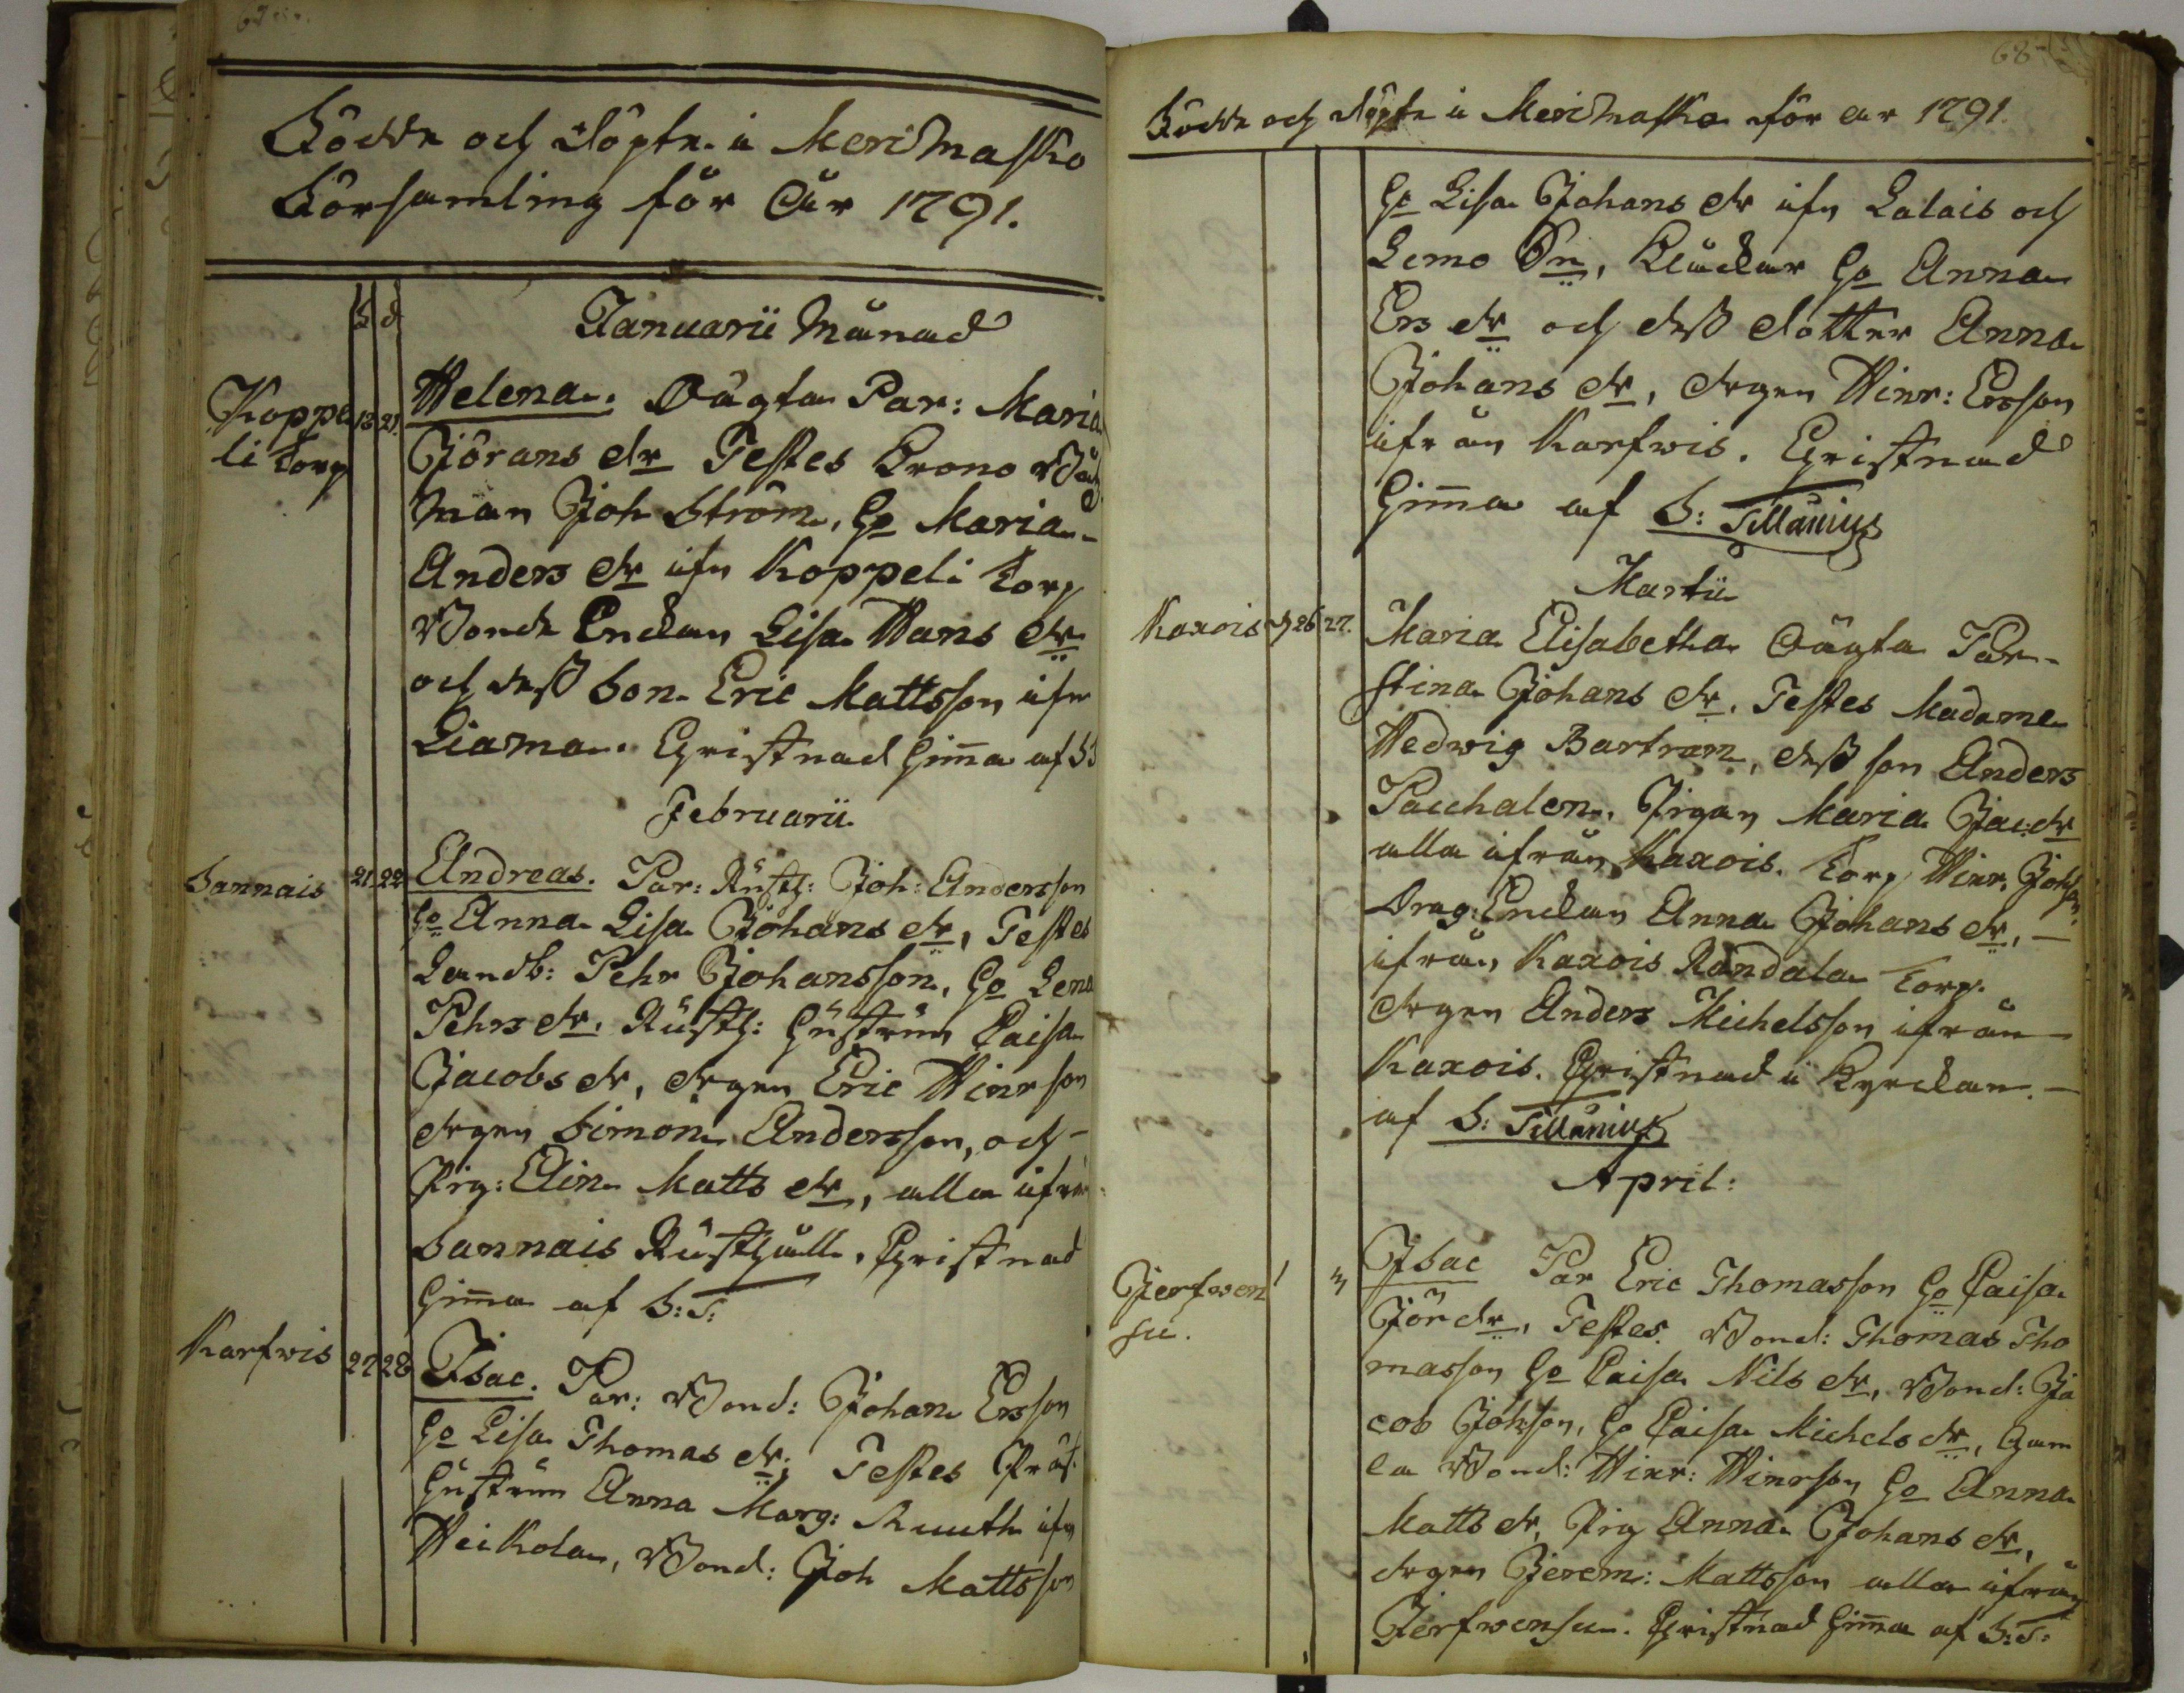 67
Födde och döpte i Merimasko
Församling för År 1791.
f d
Januarii Månad
Koppe
li torp
13 21.
Helena. Oägta Par: Maria
Görans dr Testes Krono
man Joh Ström, Ho Maria
Anders dr ifn Koppeli torp
Bonde Enckan Lisa Hans dr
och dess Son Eric Mattsson ifn
Liama. Christnad hema af S:
Februarii
Sannais 21 22
Andreas. Par: Rusth: Joh: Andersson
Ho Anna Lisa Johans dr, Testes
Landb: Pehr Johansson, Ho Lena
Pehrs dr. Rusth: hustrun Caisa
Jacobs dr, drgen Eric Hinrson
drgen Simon Andersson, och
Pig: Elin Matts dr, alla ifrån
Sannais Rusthåll. Christnad
hema af S: T:
Karfwis 27 28
Isac. Par: Bond: Johan Ersson
Ho Lisa Thomas dr; Testes
hustrun Anna Marg: Ruuth ifn
Heikola, Bond: Joh Mattsson
68
Födde och döpte i Merimasko för år 1791.
Ho Lisa Johans dr ifn Lalais och
Lemo Sn, Klockar Ho Anna
Ers dr och dess dotter Anna
Johans dr, drgen Hinr: Ersson
ifrån Karfwis. Christnad
hema af S: Tillanius
Martii
Kaxois 26 27.
Maria Elisabetha Oägta Par
Stina Johans dr. Testes Madame
Hedwig Bartram, dess son Anders
Paschalen, Pigan Maria Jac: dr
alla ifrån Kaxois. Torp Hinr. Johson
Drag: Enckan Anna Johans dr,
ifrån Kaxois Randala torp.
drgen Anders Michelsson ifrån
Kaxois. Christnad i Kyrckan.
af S: Tillanius
April:
Jerfwen
su.
1 3
Isac Par Eric Thomasson Ho Caisa
Jör dr, Testes. Bond: Thomas Tho
masson Ho Caisa Nils dr, Bond: Ja
cob Johson, Ho Caisa Michels dr, Gam
la Bond: Hinr: Hinrson Ho Anna
Matts dr, Pig Anna Johans dr,
drgen Jerem: Mattsson alla ifrån
Jerfwensu. Christnad hema af S: T: